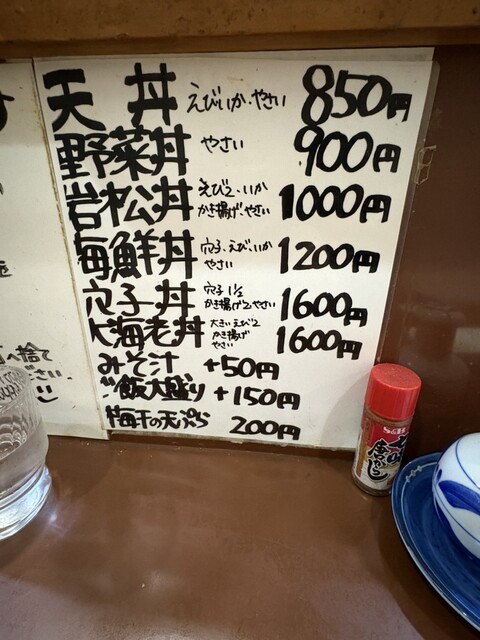 天丼 えび いか・やさい 850円
野菜丼 やさい 900円
岩松丼 えび2・いか 1000円
かき揚げ・やさい
海鮮丼 穴子・えび・いか 1200円
やさい
穴子丼 穴子 1/2 1600円
かき揚げ2 やさい
大海老丼 大きいえび2 1600円
かき揚げ
やさい
みそ汁 +50円
ご飯大盛り +150円
梅干の天ぷら 200円
へ捨て
ださい
S&B
唐からし